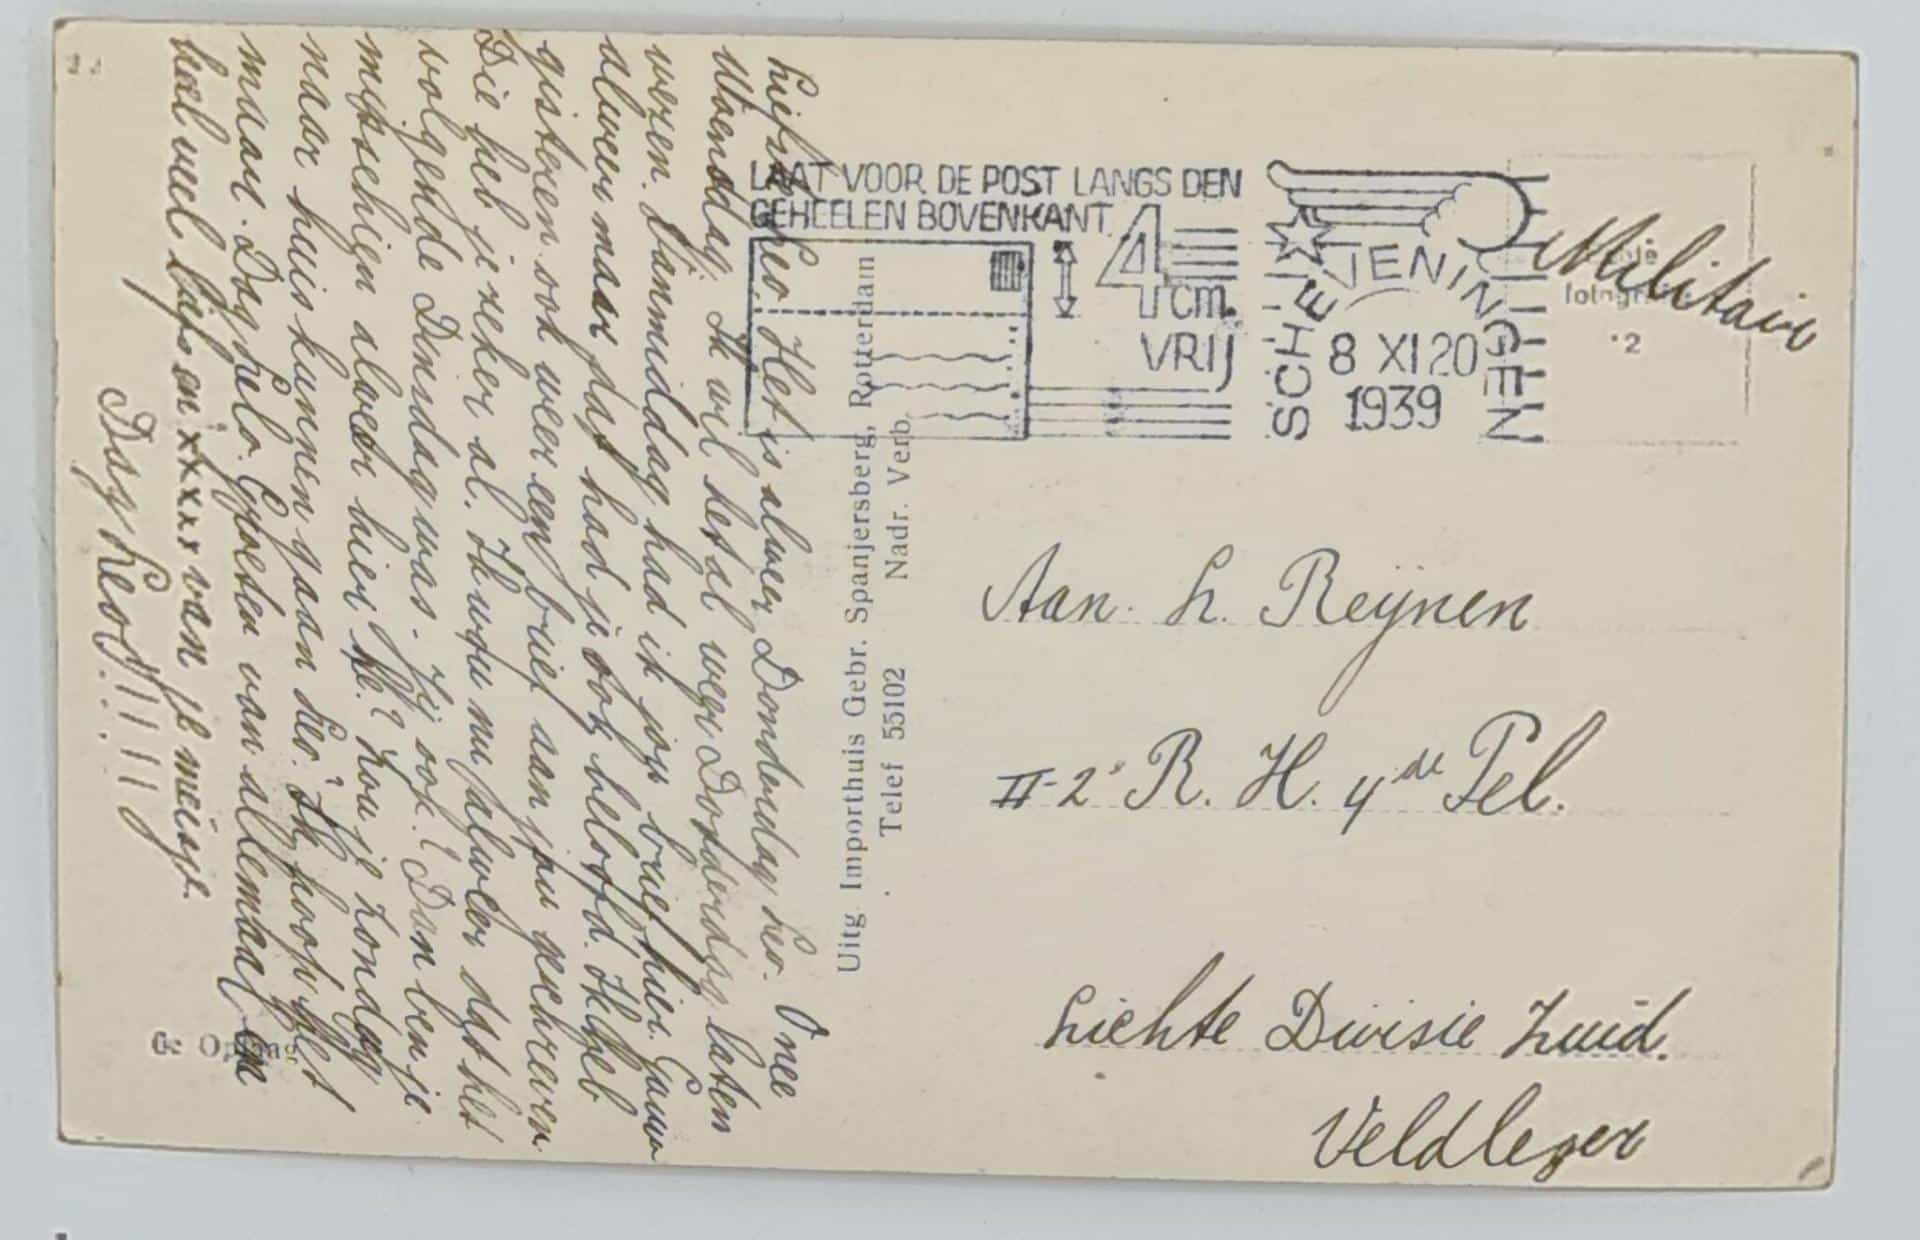 Liefste Leo Het is alweer Donderdag Leo. O nee
Woensdag. Ik wil het al weer Donderdag laten
wezen. Vanmiddag had ik jou brief hier. Gauw
alweer maar dat had je ook beloofd. Ik heb
gisteren ook weer een brief aan jou geschreven
Die heb je zeker al. Ik wou nu alweer dat het
volgende Dinsdag was. Jij ook? Dan ben je
misschien alweer hier hè? Zou je Zondag
naar huis kunnen gaan Leo? Ik hoop het
maar. Dag Leo. Groeten van allemaal en
heel veel liefs en xxxx van je meisje.
Dag Leo!!!!!!
Uitg Importhuis Gebr. Spanjersberg, Rotterdam
Telef 55102 Nadr. Verb.
LAAT VOOR DE POST LANGS DEN
GEHEELEN BOVENKANT
4 cm.
VRIJ
SCHEVENINGEN
8 XI 20
1939
Militair
2
Aan. L. Reijnen
II-2 R. H. 4de Pel.
Lichte Divisie Zuid.
Veldleger